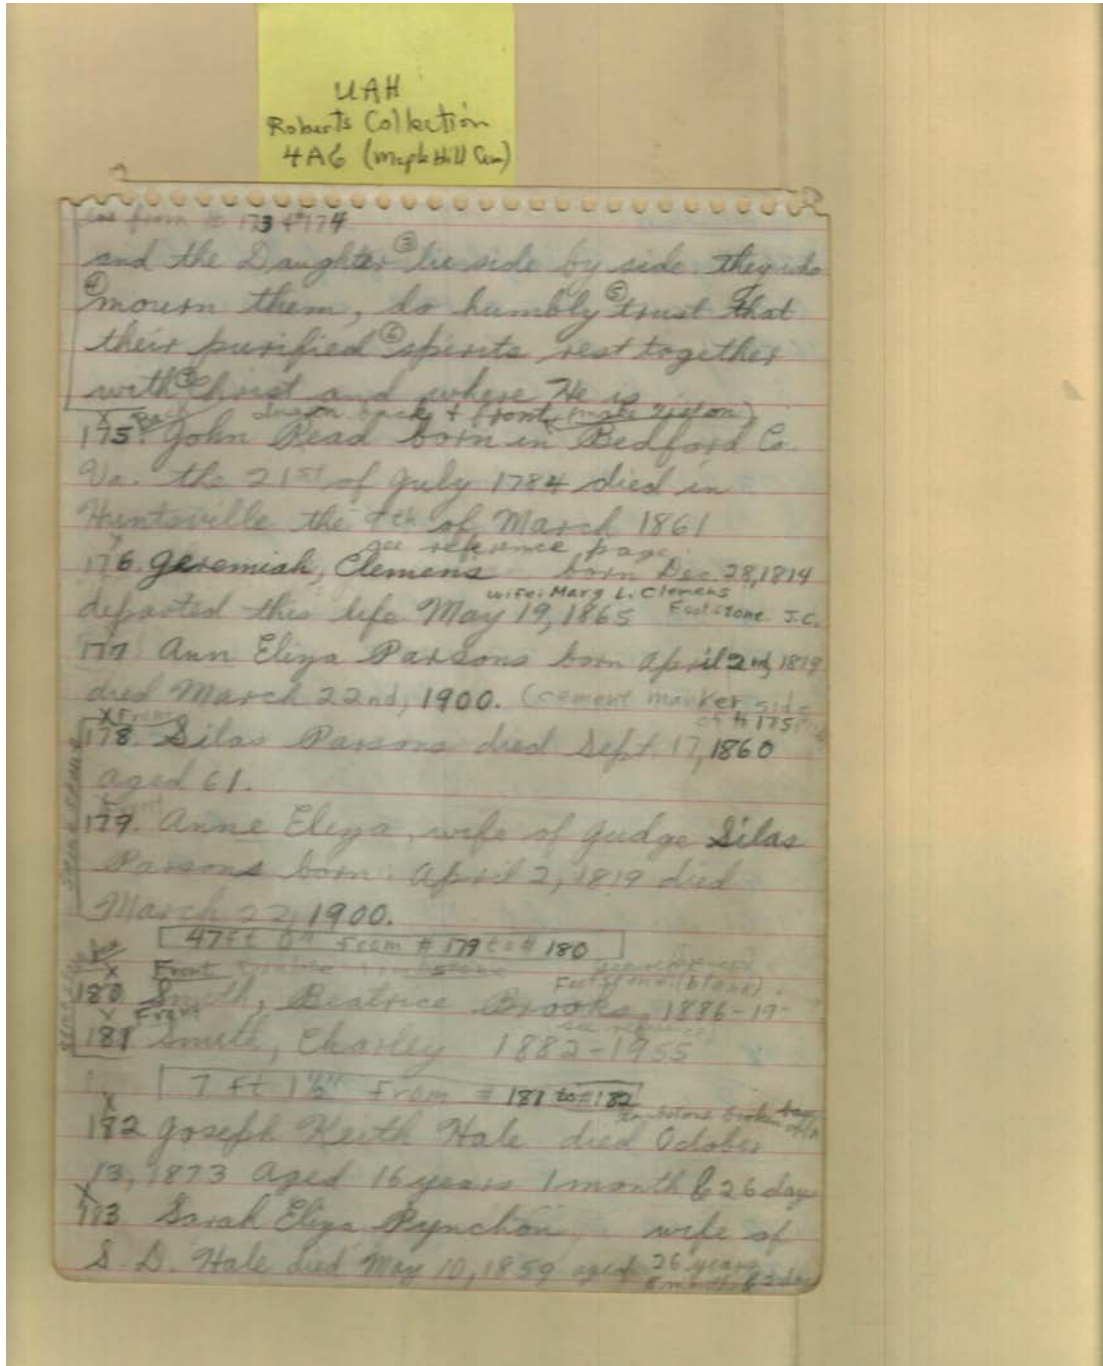 UAH
Roberts Collection
4A6 (Maple Hill Cem)
from # 173 & 174
and the Daughter ③ lie side by side. They who
④ mourn them, do humbly ⑤ trust that
their purified ⑥ spirits rest together
with Christ and where He is
Back back & front
175. John Read born in Bedford Co.
Va. the 21st of July 1784 died in
Huntsville the th of March 1861
see reference page
176. Jeremiah, Clemens born Dec 28, 1814
wife: Mary L. Clemens
departed this life May 19, 1865 Footstone J.C.
177 Ann Eliza Parsons born April 2nd, 1819
died March 22nd, 1900. (cement marker side
X Front of # 175
178. Silas Parsons died Sept. 17, 1860
aged 61.
Front
179. Anne Eliza, wife of Judge Silas
Parsons born: April 2, 1819 died
March 22, 1900.
47 ft 0" from # 179 to # 180
X Front
Footstone (blank)
180 Smith, Beatrice Brooks, 1886-19-
Front
see reference
181 Smith, Charley 1882-1955
7 ft 1½" from # 181 to # 182
X broken
182 Joseph Keith Hale died October
13, 1873 aged 16 years 1 month & 26 day
X
183 Sarah Eliza Pynchon, wife of
S. D. Hale died May 10, 1859 aged 26 years